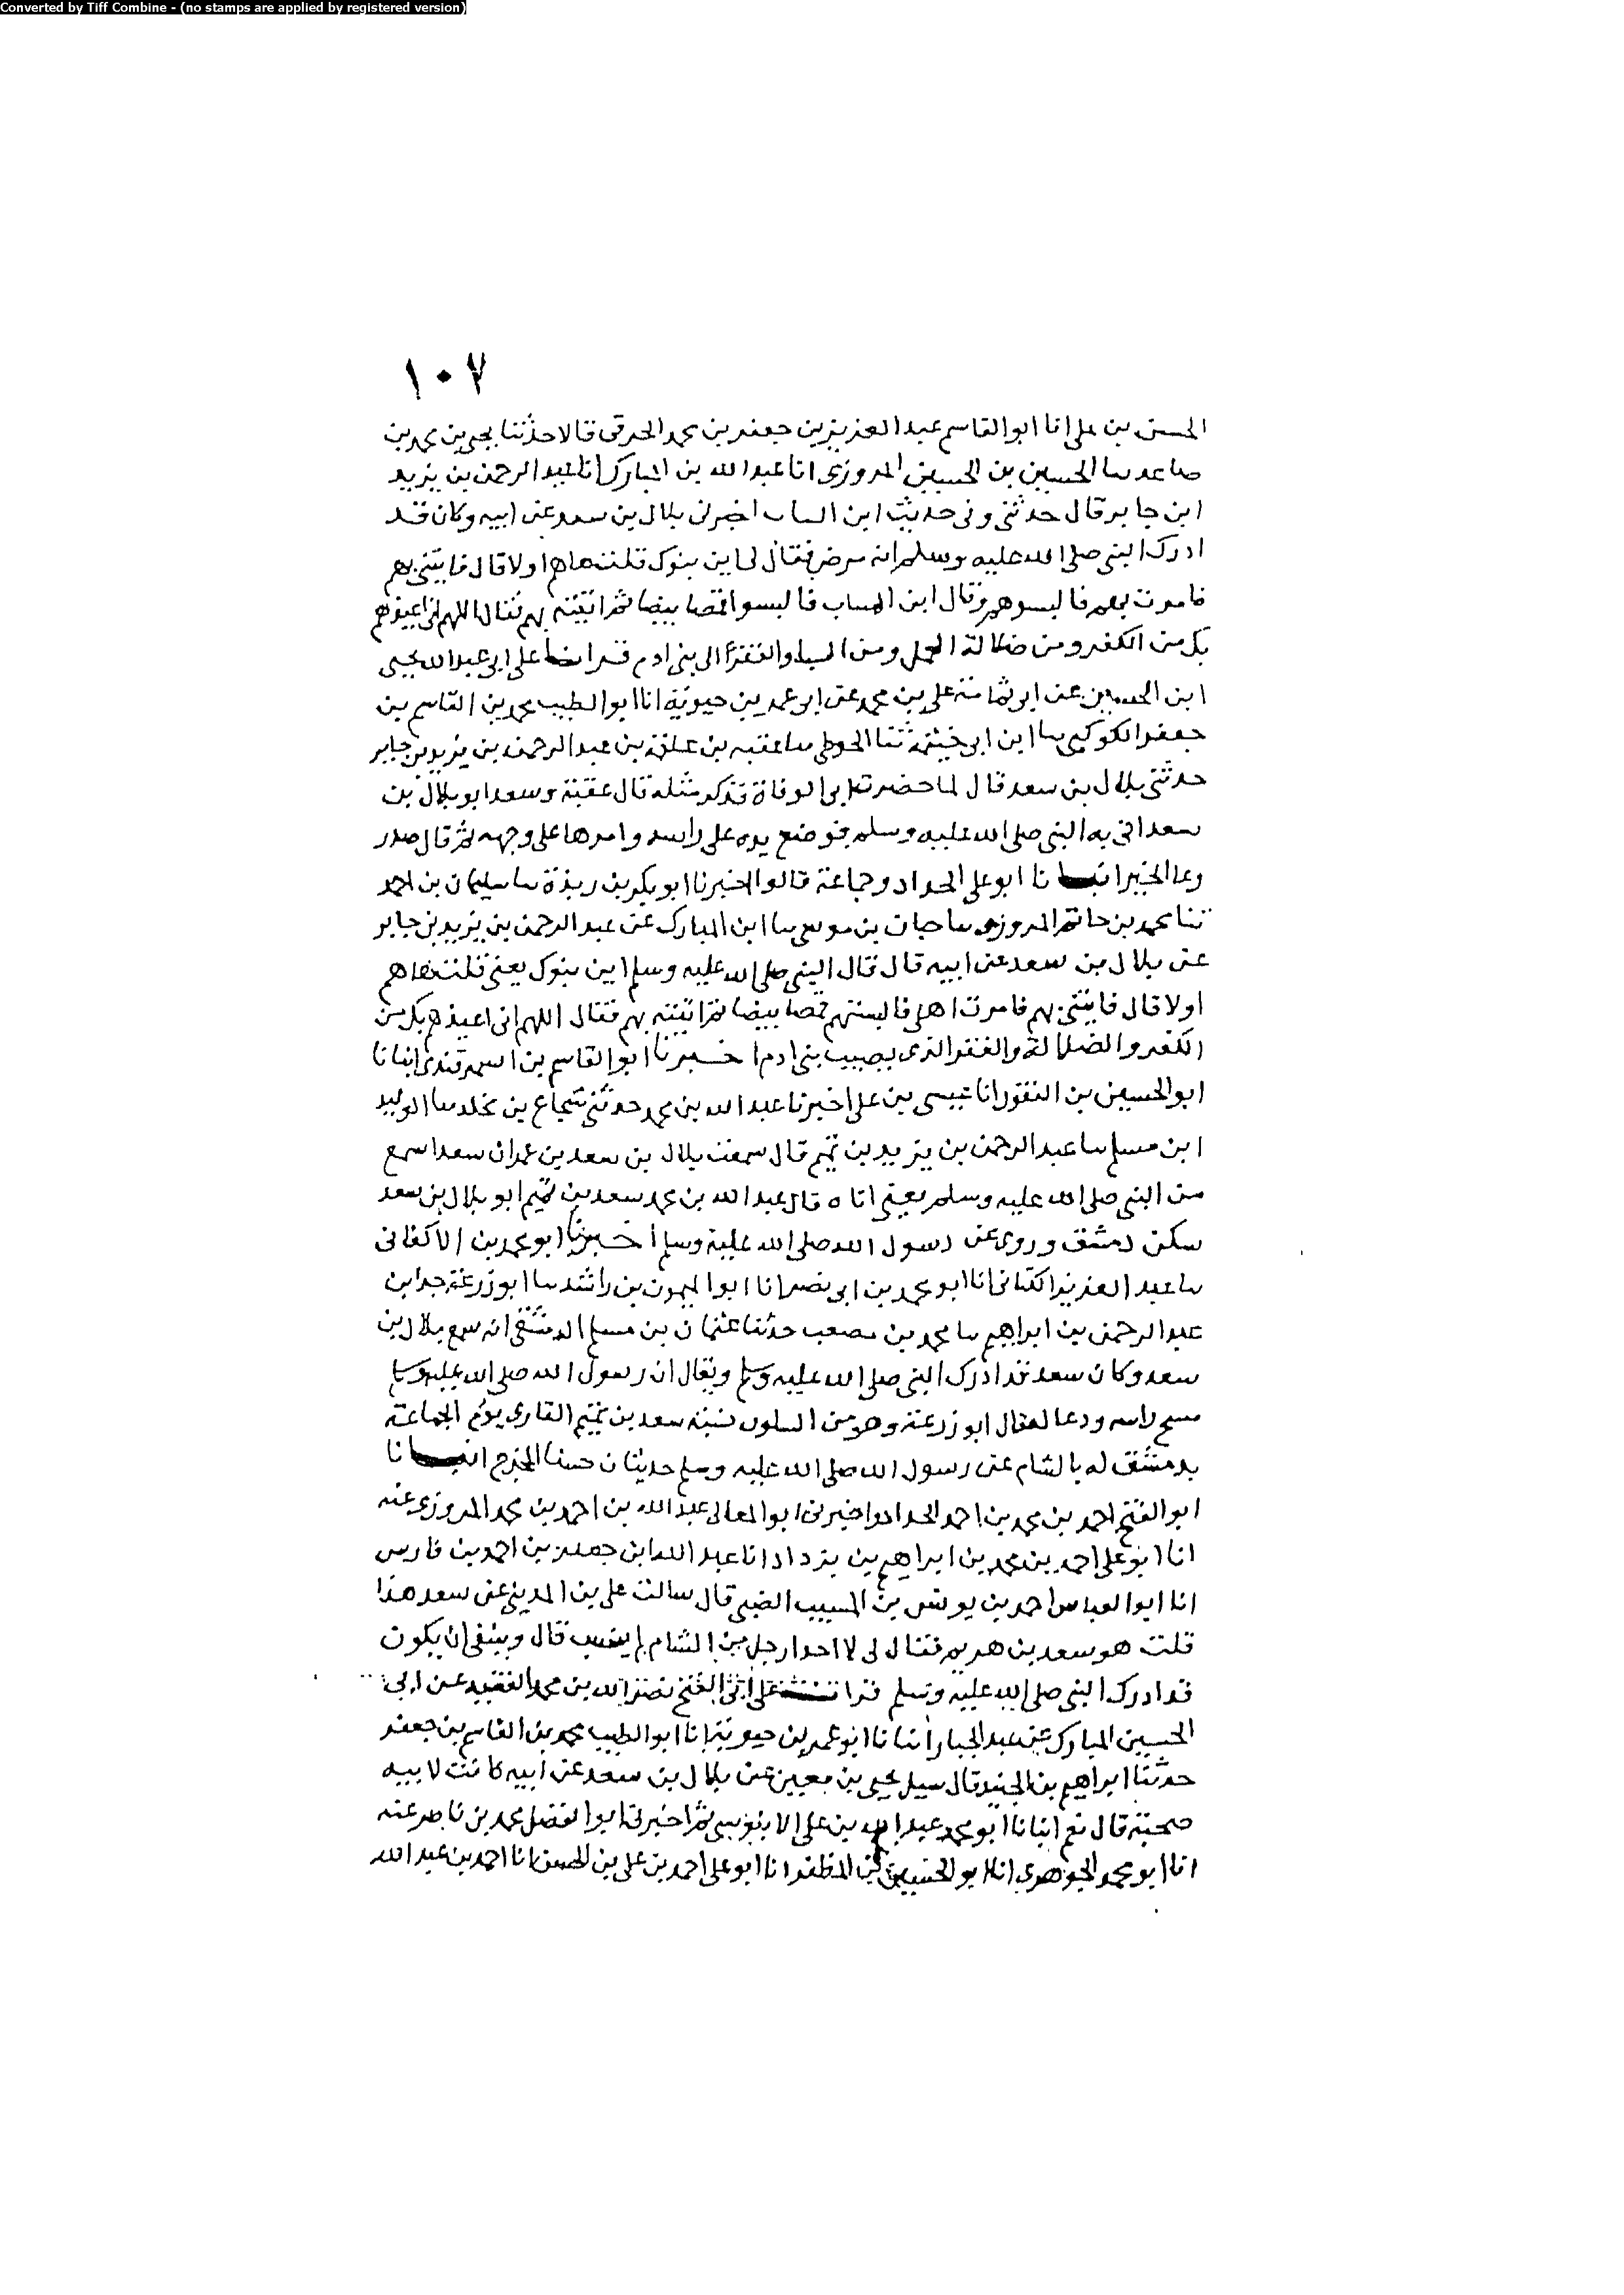 Converted by Tiff Combine - (no stamps are applied by registered version)
١٠٧
الحسن بن على انا ابو القاسم عبد العزيز بن جعفر بن محمد الخرقى قالا حدثنا يحيى بن محمد بن
صاعد سا الحسين بن الحسين المروزى انا عبد الله بن المبارك انا عبد الرحمن بن يزيد
ابن جابر قال حدثنى وفى حديث ابن الساب اخبرنى بلال بن سعد عن ابيه وكان قد
ادرك النبى صلى الله عليه وسلم انه مرض فقال لى اين بنوك قلت هاهم اولا قال فايتنى بهم
فامرت بهم فالبسوهم وقال ابن الساب فالبسوا قمصا بيضا ثم اتيته بهم فقال اللهم انى اعيذهم
بك من الكفر ومن ضلالة العمل ومن السباو الفقر الى بنى ادم قرات على ابى عبد الله يحيى
ابن الحسين عن ابى تمامة على بن محمد عن ابى عمر بن حيوية انا ابو الطيب محمد بن القاسم بن
جعفر الكوكبى سا ابن ابى خيثمة ثنا الحوطى سا عقبه بن علقة بن عبد الرحمن بن يزيد بن جابر
حدثنى بلال بن سعد قال لما حضرت ابى الوفاة فذكر مثله قال عقبة وسعد ابو بلال بن
سعد اتى به النبى صلى الله عليه وسلم فوضع يده على راسه وامرها على وجهه ثم قال صدر
وعا الخير انبانا ابو على الحداد وجماعة قالوا اخبرنا ابو بكر بن ريذة سا سليمان بن احمد
ثنا محمد بن حاتم المروزى سا حبان بن موسى سا ابن المبارك عن عبد الرحمن بن يزيد بن جابر
عن بلال بن سعد عن ابيه قال قال النبى صلى الله عليه وسلم اين بنوك يعنى قلت هاهم
اولا قال فايتنى بهم فامرت اهلى فالبستهم قمصا بيضا ثم اتيته بهم فقال اللهم انى اعيذهم بك من
الكفر والضلالة والفقر الذى يصيب بنى ادم اخبرنا ابو القاسم بن السمرقندى انبانا
ابو الحسين بن النقور انا عيسى بن على اخبرنا عبد الله بن محمد حدثنى شجاع بن مخلد سا الوليد
ابن مسلم سا عبد الرحمن بن يزيد بن تميم قال سمعت بلال بن سعد بن عمران سعدا سمع
من النبى صلى الله عليه وسلم يعنى اتاه قال عبد الله بن محمد سعد بن تميم ابو بلال بن سعد
سكن دمشق وروى عن رسول الله صلى الله عليه وسلم اخبرنا ابو محمد بن الاكفانى
سا عبد العزيز الكتانى انا ابو محمد بن ابى نصر انا ابو الميمون بن راشد سا ابو زرعة حدابن
عبد الرحمن بن ابراهيم سا محمد بن مصعب حدثنا عثمان بن مسلم الدمشقى انه سمع بلال بن
سعد وكان سعد قد ادرك النبى صلى الله عليه وسلم ويقال ان رسول الله صلى الله عليه وسلم
مسح راسه ودعا له قال ابو زرعة وهو من السلون نسبه سعد بن تميم القارى يوم الجماعة
بدمشق له بالشام عن رسول الله صلى الله عليه وسلم حديثان حسنا المخرج انبانا
ابو الفتح احمد بن محمد بن احمد الحداد واخبرنى ابو المعالى عبد الله بن احمد بن محمد المروزى عنه
انا ابو على احمد بن محمد بن ابراهيم بن يزداد انا عبد الله ابن جعفر بن احمد بن فارس
انا ابو العباس احمد بن يونس بن المسيب الضبى قال سالت على بن المدينى عن سعد هذا
قلت هو سعد بن هريم فقال لى لا احدا رجل من الشام لم ينسب قال وينبغى ان يكون
قد ادرك النبى صلى الله عليه وسلم قرات على ابى الفتح نصر الله بن محمد الفقيه عن ابى
الحسين المبارك عن عبد الجبار انبانا ابو عمر بن حيوية انا ابو الطيب محمد بن القاسم بن جعفر
حدثنا ابراهيم بن الجنيد قال سيل يحيى بن معين عن بلال بن سعد عن ابيه كانت لابيه
صحبة قال نعم انبانا ابو محمد عبد الله بن على الابنوسى ثم اخبرنى ابو الفضل محمد بن ناصر عنه
انا ابو محمد الجوهرى انا ابو الحسين بن المظفر انا ابو على احمد بن على بن الحسن انا احمد بن عبد الله